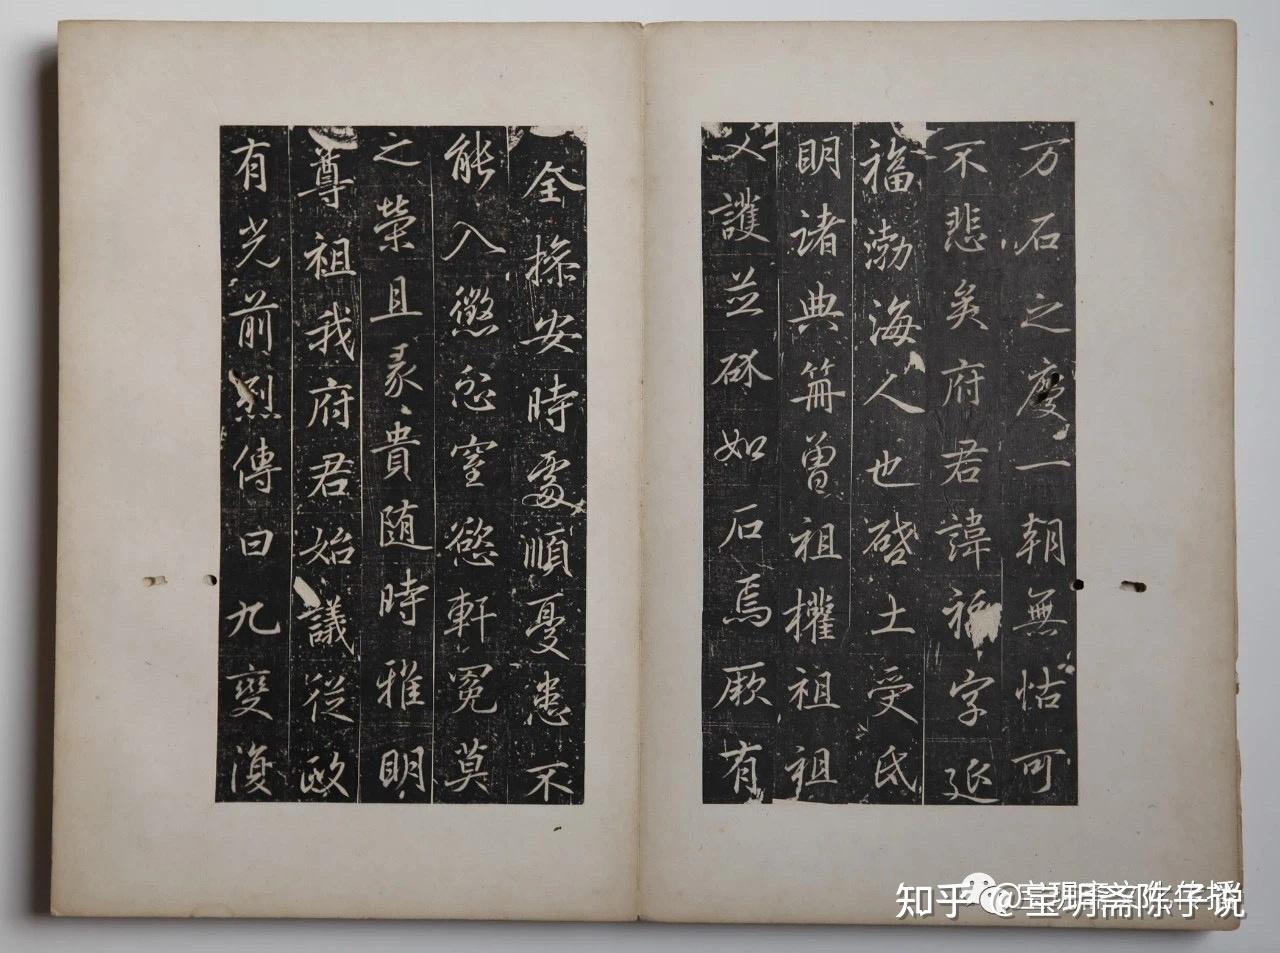 万石之慶一朝無怙可
不悲矣府君諱福字延
福渤海人也啓土受氏
明諸典冊曾祖權祖祖
父護並砅如石焉厥有
全操安時處順憂患不
能入懲忿窒慾軒冕莫
之榮且彖貴随時雅明
尊祖我府君始議従政
有光前烈傳曰九變復
知乎 @宝玥斋陈子说